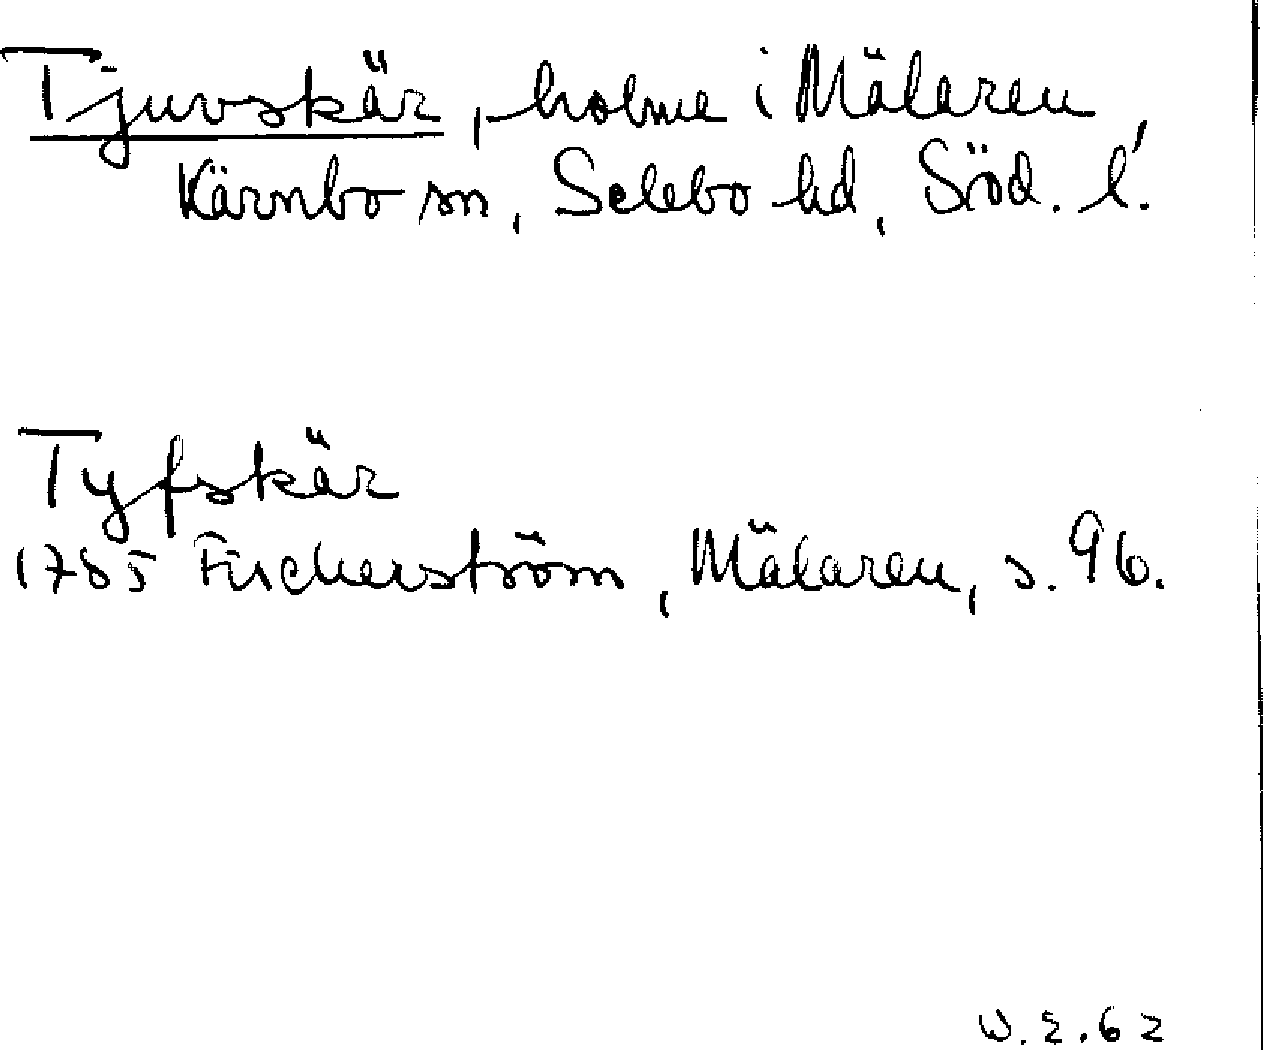 Tjuvskär, holme i Mälaren,
Kärnbo sn, Selebo hd, Söd. l.
Tyfskär
1785 Fischerström, Mälaren, s. 96.
W. E. 62